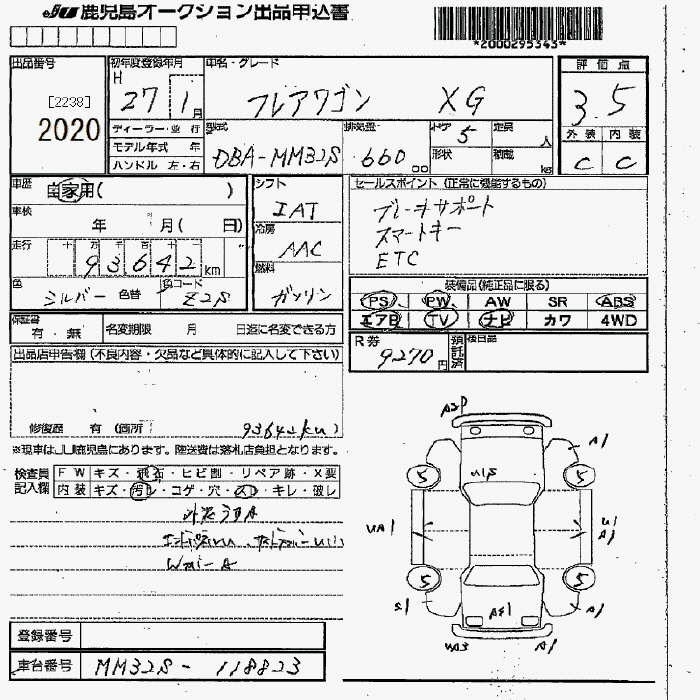 JU 鹿児島オークション出品申込書
*2000295343*
出品番号
[2238]
2020
初年度登録年月
H 27 1月
車名・グレード
フレアワゴン XG
評価点
3.5
外装 内装
C C
ディーラー・並行
モデル年式 年
ハンドル 左・右
型式
DBA-MM32S
排気量
660 cc
ドア 5
形状
定員 人
積載 kg
車歴
自家用( )
車検
年 月( 日)
走行
十万千百十一
93642 km
色
シルバー 色替
色コード
Z2S
シフト
IAT
冷房
AAC
燃料
ガソリン
セールスポイント (正常に機能するもの)
ブレーキサポート
スマートキー
ETC
装備品(純正品に限る)
PS PW AW SR ABS
エアB TV ナビ カワ 4WD
保証書
有・無
名変期限 月 日迄に名変できる方
R券
9270円
預託済
後日品
出品店申告欄 (不良内容・欠品など具体的に記入して下さい)
修復歴 有 (箇所 93642km)
※現車はJU鹿児島にあります。陸送費は落札店負担となります。
検査員
記入欄
FW キズ・飛石・ヒビ割・リペア跡・X要
内装 キズ・汚レ・コゲ・穴・スレ・キレ・破レ
登録番号
車台番号
MM32S - 118823
A2P
A1
5
5
U1S
UA1
U1
A1
5
5
S1
A1
UA3
A1